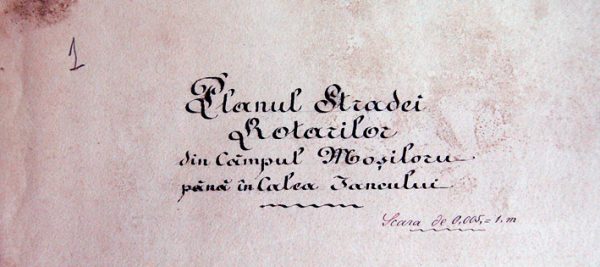 1
Planul Stradei
Rotarilor
din Câmpul Moșiloru
până în Calea Iancului
Scara de 0,005,=1.m